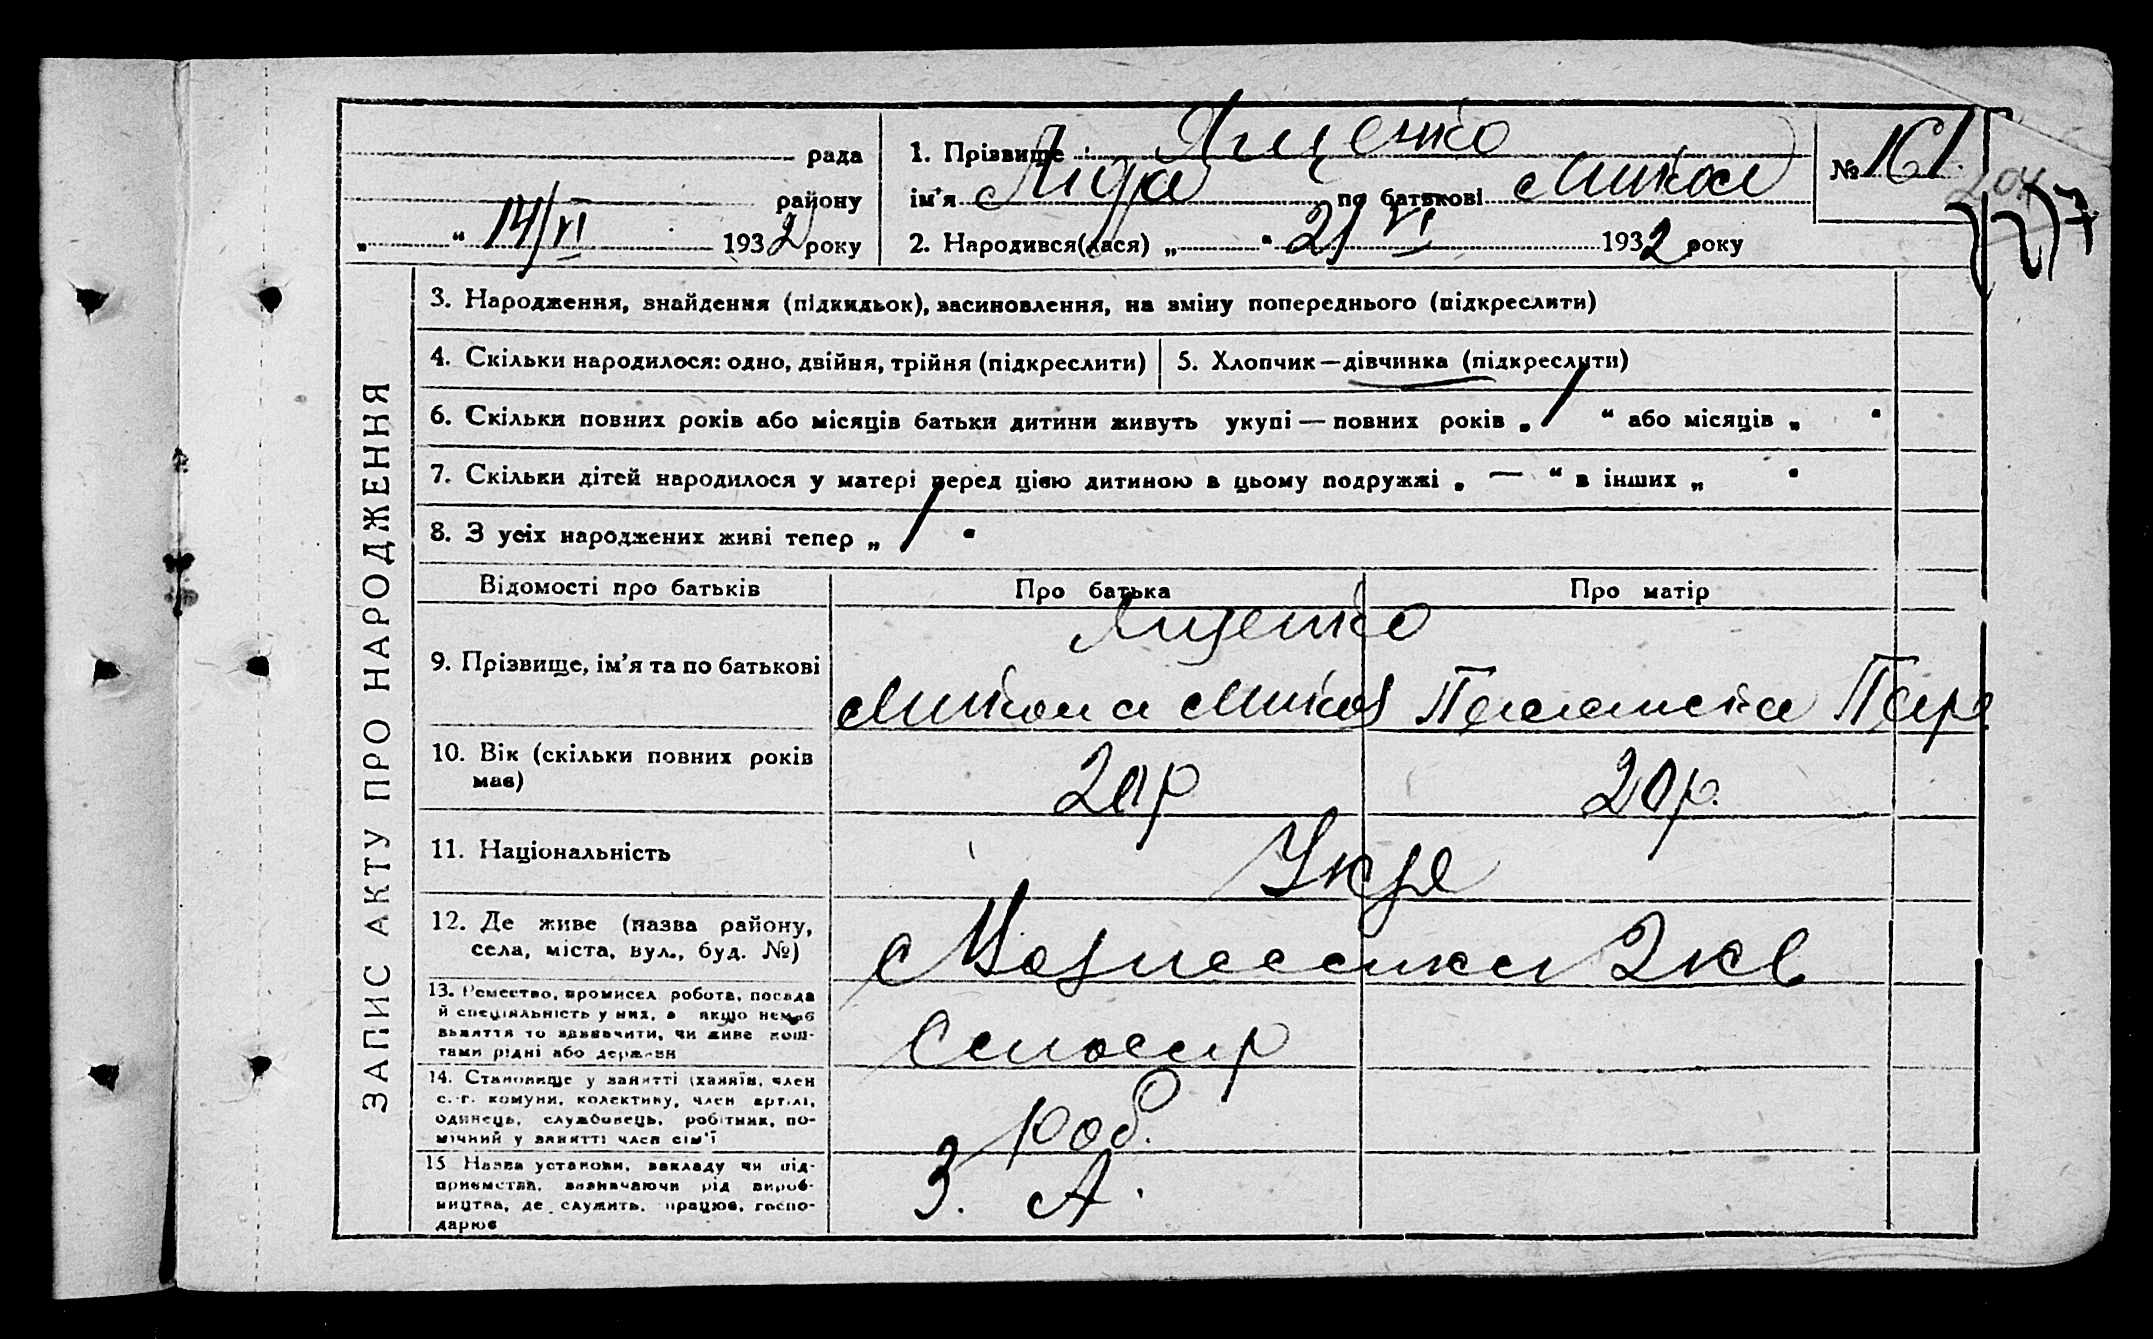 рада
району
„ “ 14/VI 1932 року
1. Прізвище Ященко
ім'я Ліда по батькові Микол
2. Народився(лася) „ “ 2/VI 1932 року
№ 161
ЗАПИС АКТУ ПРО НАРОДЖЕННЯ
3. Народження, знайдення (підкидьок), засиновлення, на зміну попереднього (підкреслити)
4. Скільки народилося: одно, двійня, трійня (підкреслити)
5. Хлопчик — дівчинка (підкреслити)
6. Скільки повних років або місяців батьки дитини живуть укупі — повних років „ 1 “ або місяців „ “
7. Скільки дітей народилося у матері перед цією дитиною в цьому подружжі „ — “ в інших „ “
8. З усіх народжених живі тепер „ 1 “
Відомості про батьків
Про батька
Про матір
9. Прізвище, ім'я та по батькові
Ященко
Микола Микол
Пелагея
10. Вік (скільки повних років
має)
20 р
20 р.
11. Національність
Укр
12. Де живе (назва району,
села, міста, вул., буд. №)
Вознесенка 2 кв
13. Ремество, промисел, робота, посада
й спеціяльність у них, а якщо немає
заняття то зазначити, чи живе кош-
тами рідні або держави
Слюсар
14. Становище у занятті (хазяїн, член
с.-г. комуни, колективу, член артілі,
одинець, службовець, робітник, по-
мічний у занятті член сім'ї
роб.
15 Назва установи, закладу чи під-
приємства, зазначаючи рід вироб-
ництва, де служить, працює, госпо-
дарює
З. А.